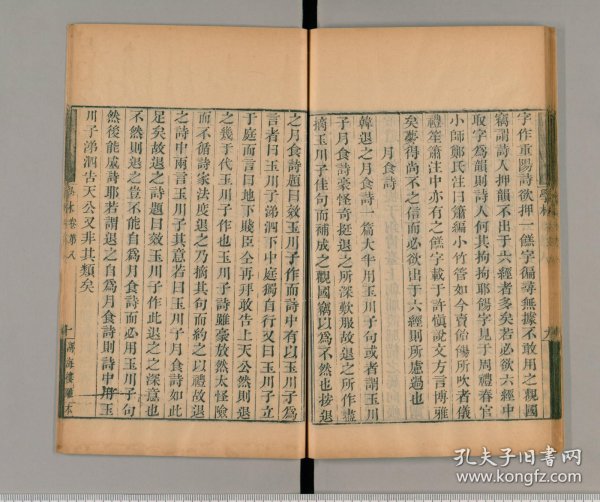 字作重陽詩欲押一餻字徧尋無據不敢用之觀國
竊謂詩人押韻不出于六經者多矣若必欲六經中
取字爲韻則詩人何其拘拘耶餳字見于周禮春官
小師鄭氏注曰簫編小竹管如今賣飴餳所吹者儀
禮笙簫注中亦有之餻字載于許愼說文方言博雅
矣夢得尚不之信而必欲出于六經則所慮過也
月食詩
韓退之月食詩一篇大半用玉川子句或者謂玉川
子月食詩豪怪奇挺退之所深歎服故退之所作盡
摘玉川子佳句而補成之觀國竊以爲不然也按退
之月食詩題曰效玉川子作而詩中有以玉川子爲
言者曰玉川子涕泗下中庭獨自行又曰玉川子立
于庭而言曰地下賤臣仝再拜敢告上天公然則退
之幾于代玉川子作也玉川子詩雖豪放然太怪險
而不循詩家法度退之乃摘其句而約之以禮故退
之詩中兩言玉川子其意若曰玉川子月食詩如此
足矣故退之詩題曰效玉川子作此退之之深意也
不然則退之豈不能自爲月食詩而必用玉川子句
然後能成詩耶若謂退之自爲月食詩則詩中用玉
川子涕泗告天公又非其類矣
學林卷第八
十
湖海樓雕本
孔夫子旧书网
www.kongfz.com